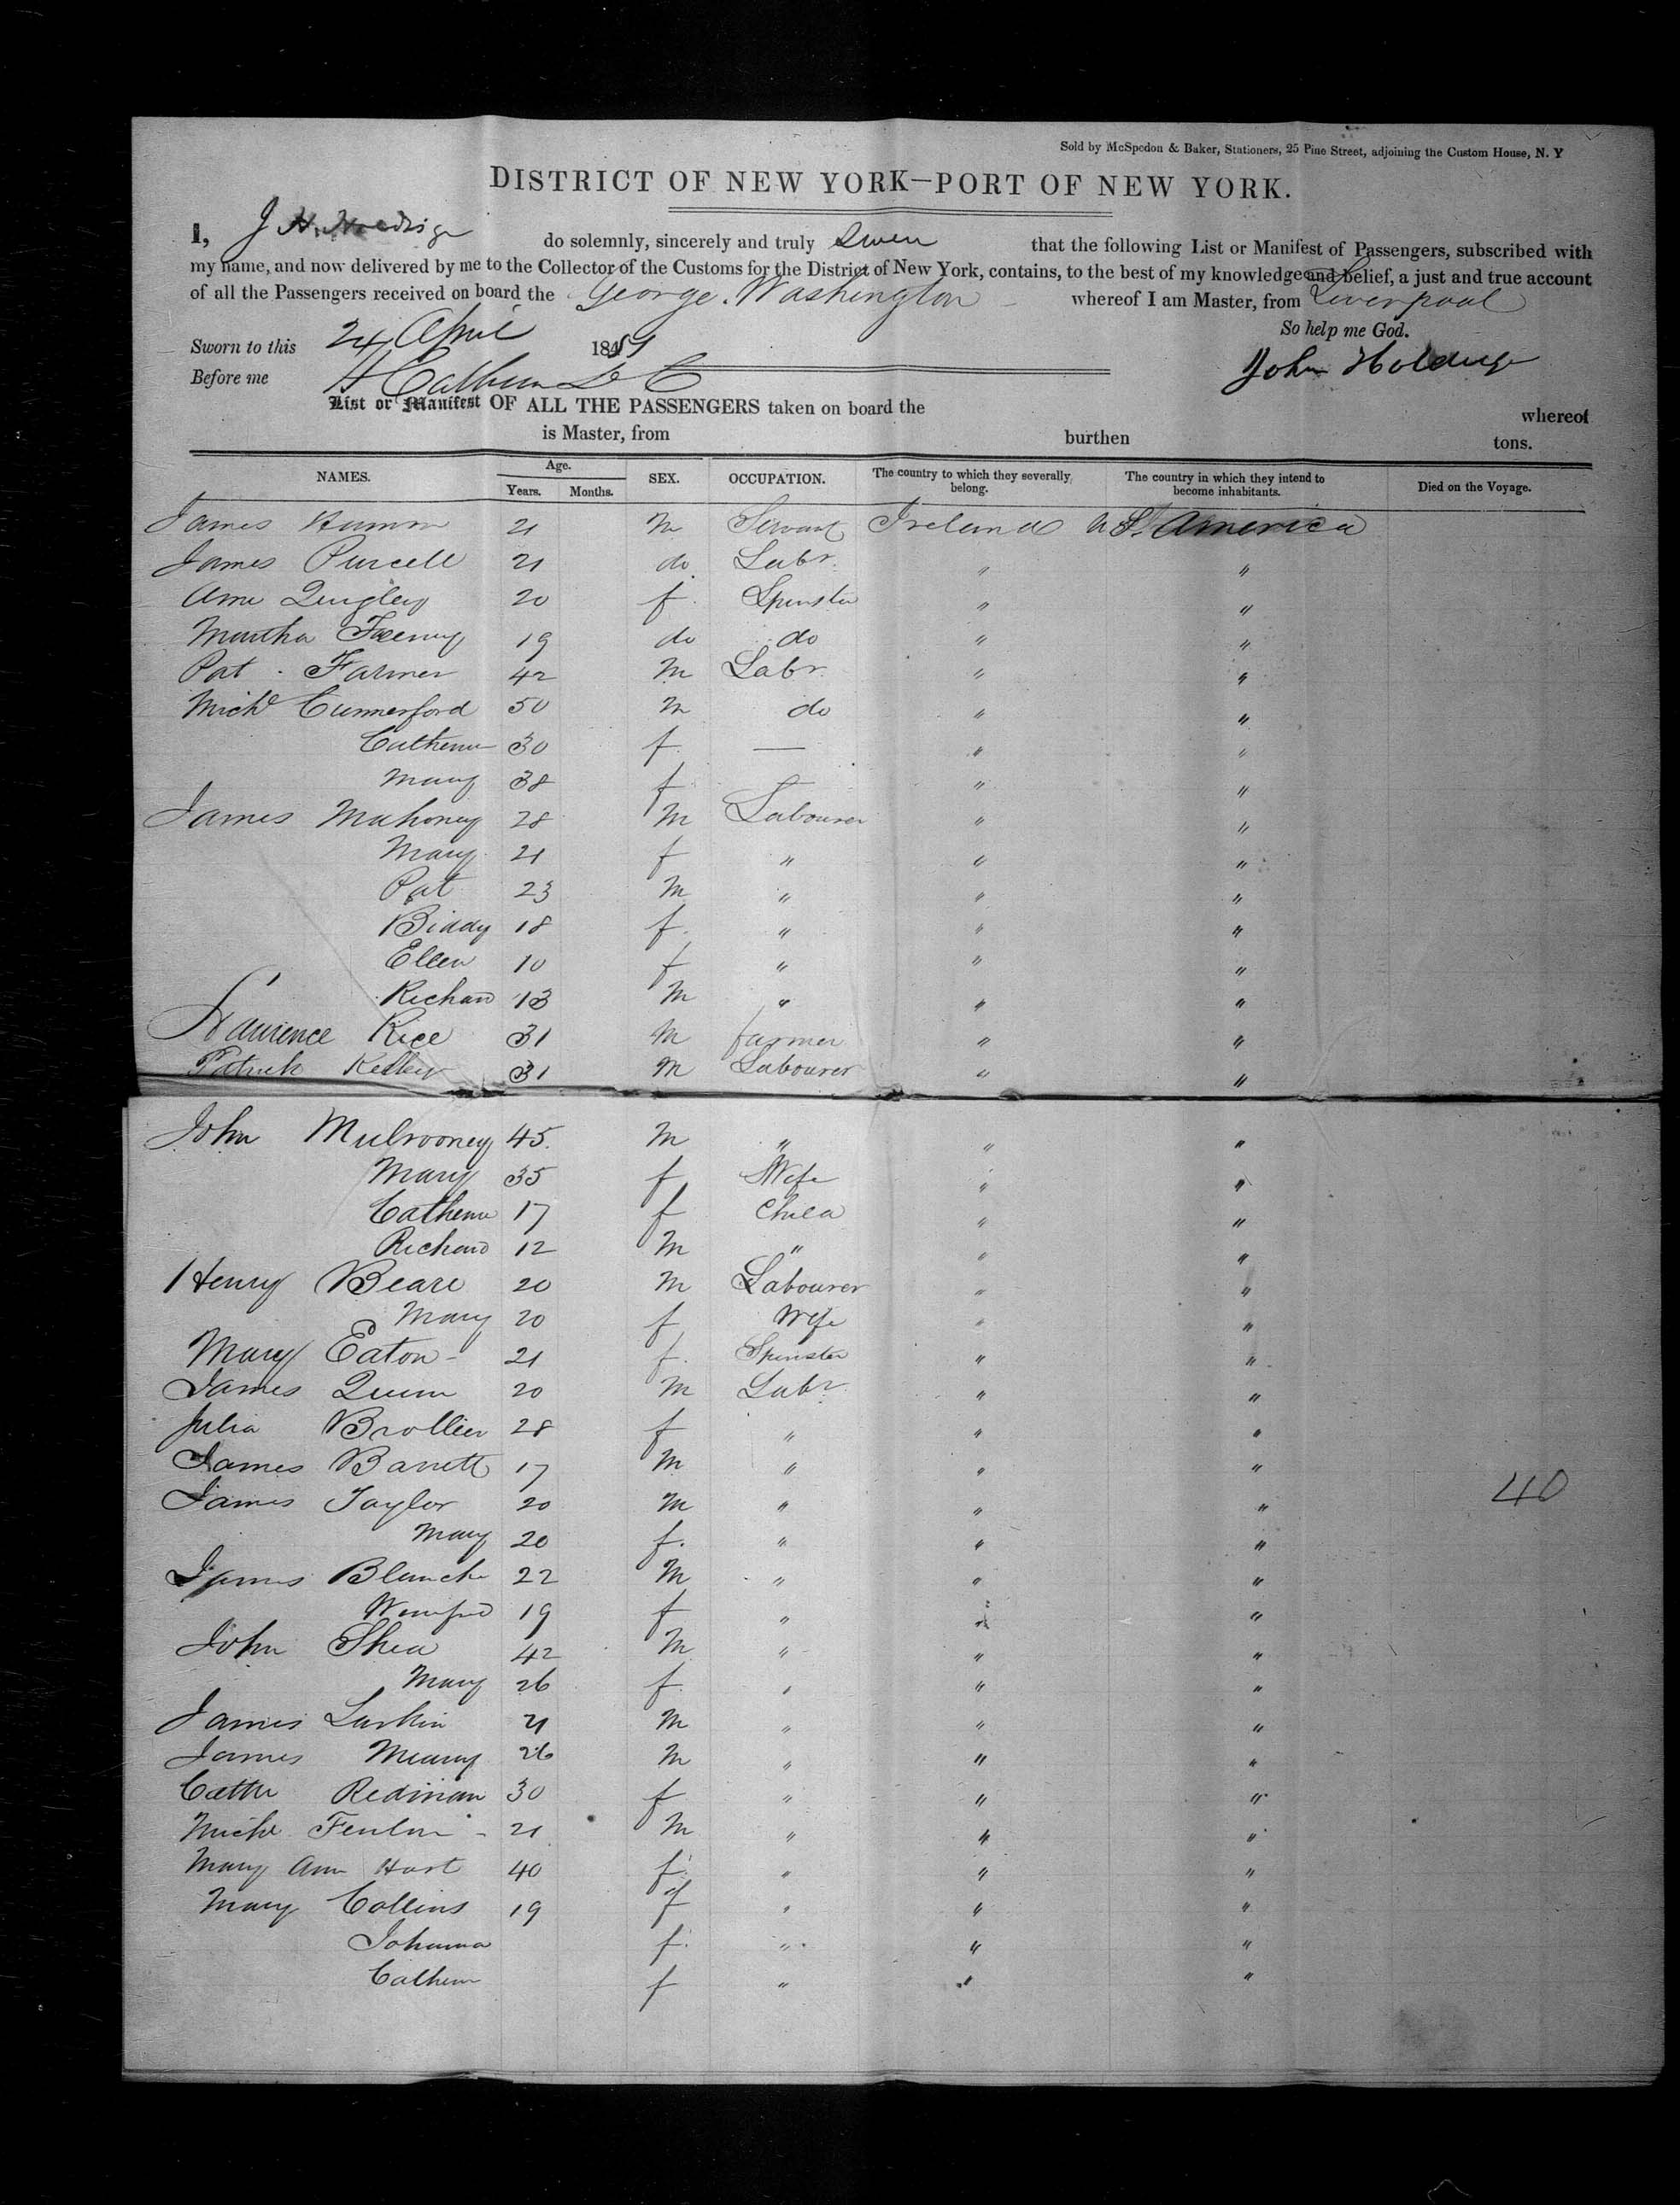 Sold by McSpedon & Baker, Stationers, 25 Pine Street, adjoining the Custom House, N. Y
DISTRICT OF NEW YORK—PORT OF NEW YORK.
I, J H. do solemnly, sincerely and truly Swear that the following List or Manifest of Passengers, subscribed with
my name, and now delivered by me to the Collector of the Customs for the District of New York, contains, to the best of my knowledge and belief, a just and true account
of all the Passengers received on board the George Washington whereof I am Master, from Liverpool
So help me God.
Sworn to this 24 April 18
John Holdrege
Before me
List or Manifest OF ALL THE PASSENGERS taken on board the whereof
is Master, from burthen tons.
NAMES. Age. Years. Months. SEX. OCCUPATION. The country to which they severally belong. The country in which they intend to become inhabitants. Died on the Voyage.
James 21 M Servant Ireland U St. America
James Purcell 21 do Labr. " "
Ann Quigley 20 f. Spinster " "
Martha 19 do do " "
Pat. Farmer 42 M Labr. " "
Michl Cummerford 50 M do " "
Catherine 30 f. — " "
Mary 38 f — " "
James Mahoney 28 M Labourer " "
Mary 21 f " " "
Pat 23 M " " "
Biddy 18 f. " " "
Ellen 10 f " " "
Richard 13 M " " "
Laurence Rice 31 M farmer " "
Patrick Kelley 31 M Labourer " "
John Mulrooney 45. M " " "
Mary 35 f Wife " "
Catherine 17 f Child " "
Richard 12 M " " "
Henry Beare 20 M Labourer " "
Mary 20 f Wife " "
Mary Eaton - 21 f. Spinster " "
James Quinn 20 M Labr " "
Julia Brollier 28 f " " "
James Barrett 17 M " " "
James Taylor 20 M " " " 40
Mary 20 f. " " "
James Blanche 22 M " " "
Winifred 19 f " " "
John Shea 42 M " " "
Mary 26 f. " " "
James Larkin 21 M " " "
James 26 M " " "
Cathe Redman 30 f " " "
Michl Fenlon - 21 M " " "
Mary Ann Hart 40 f. " " "
Mary Collins 19 f " " "
Johanna f. " " "
Catherin f " " "